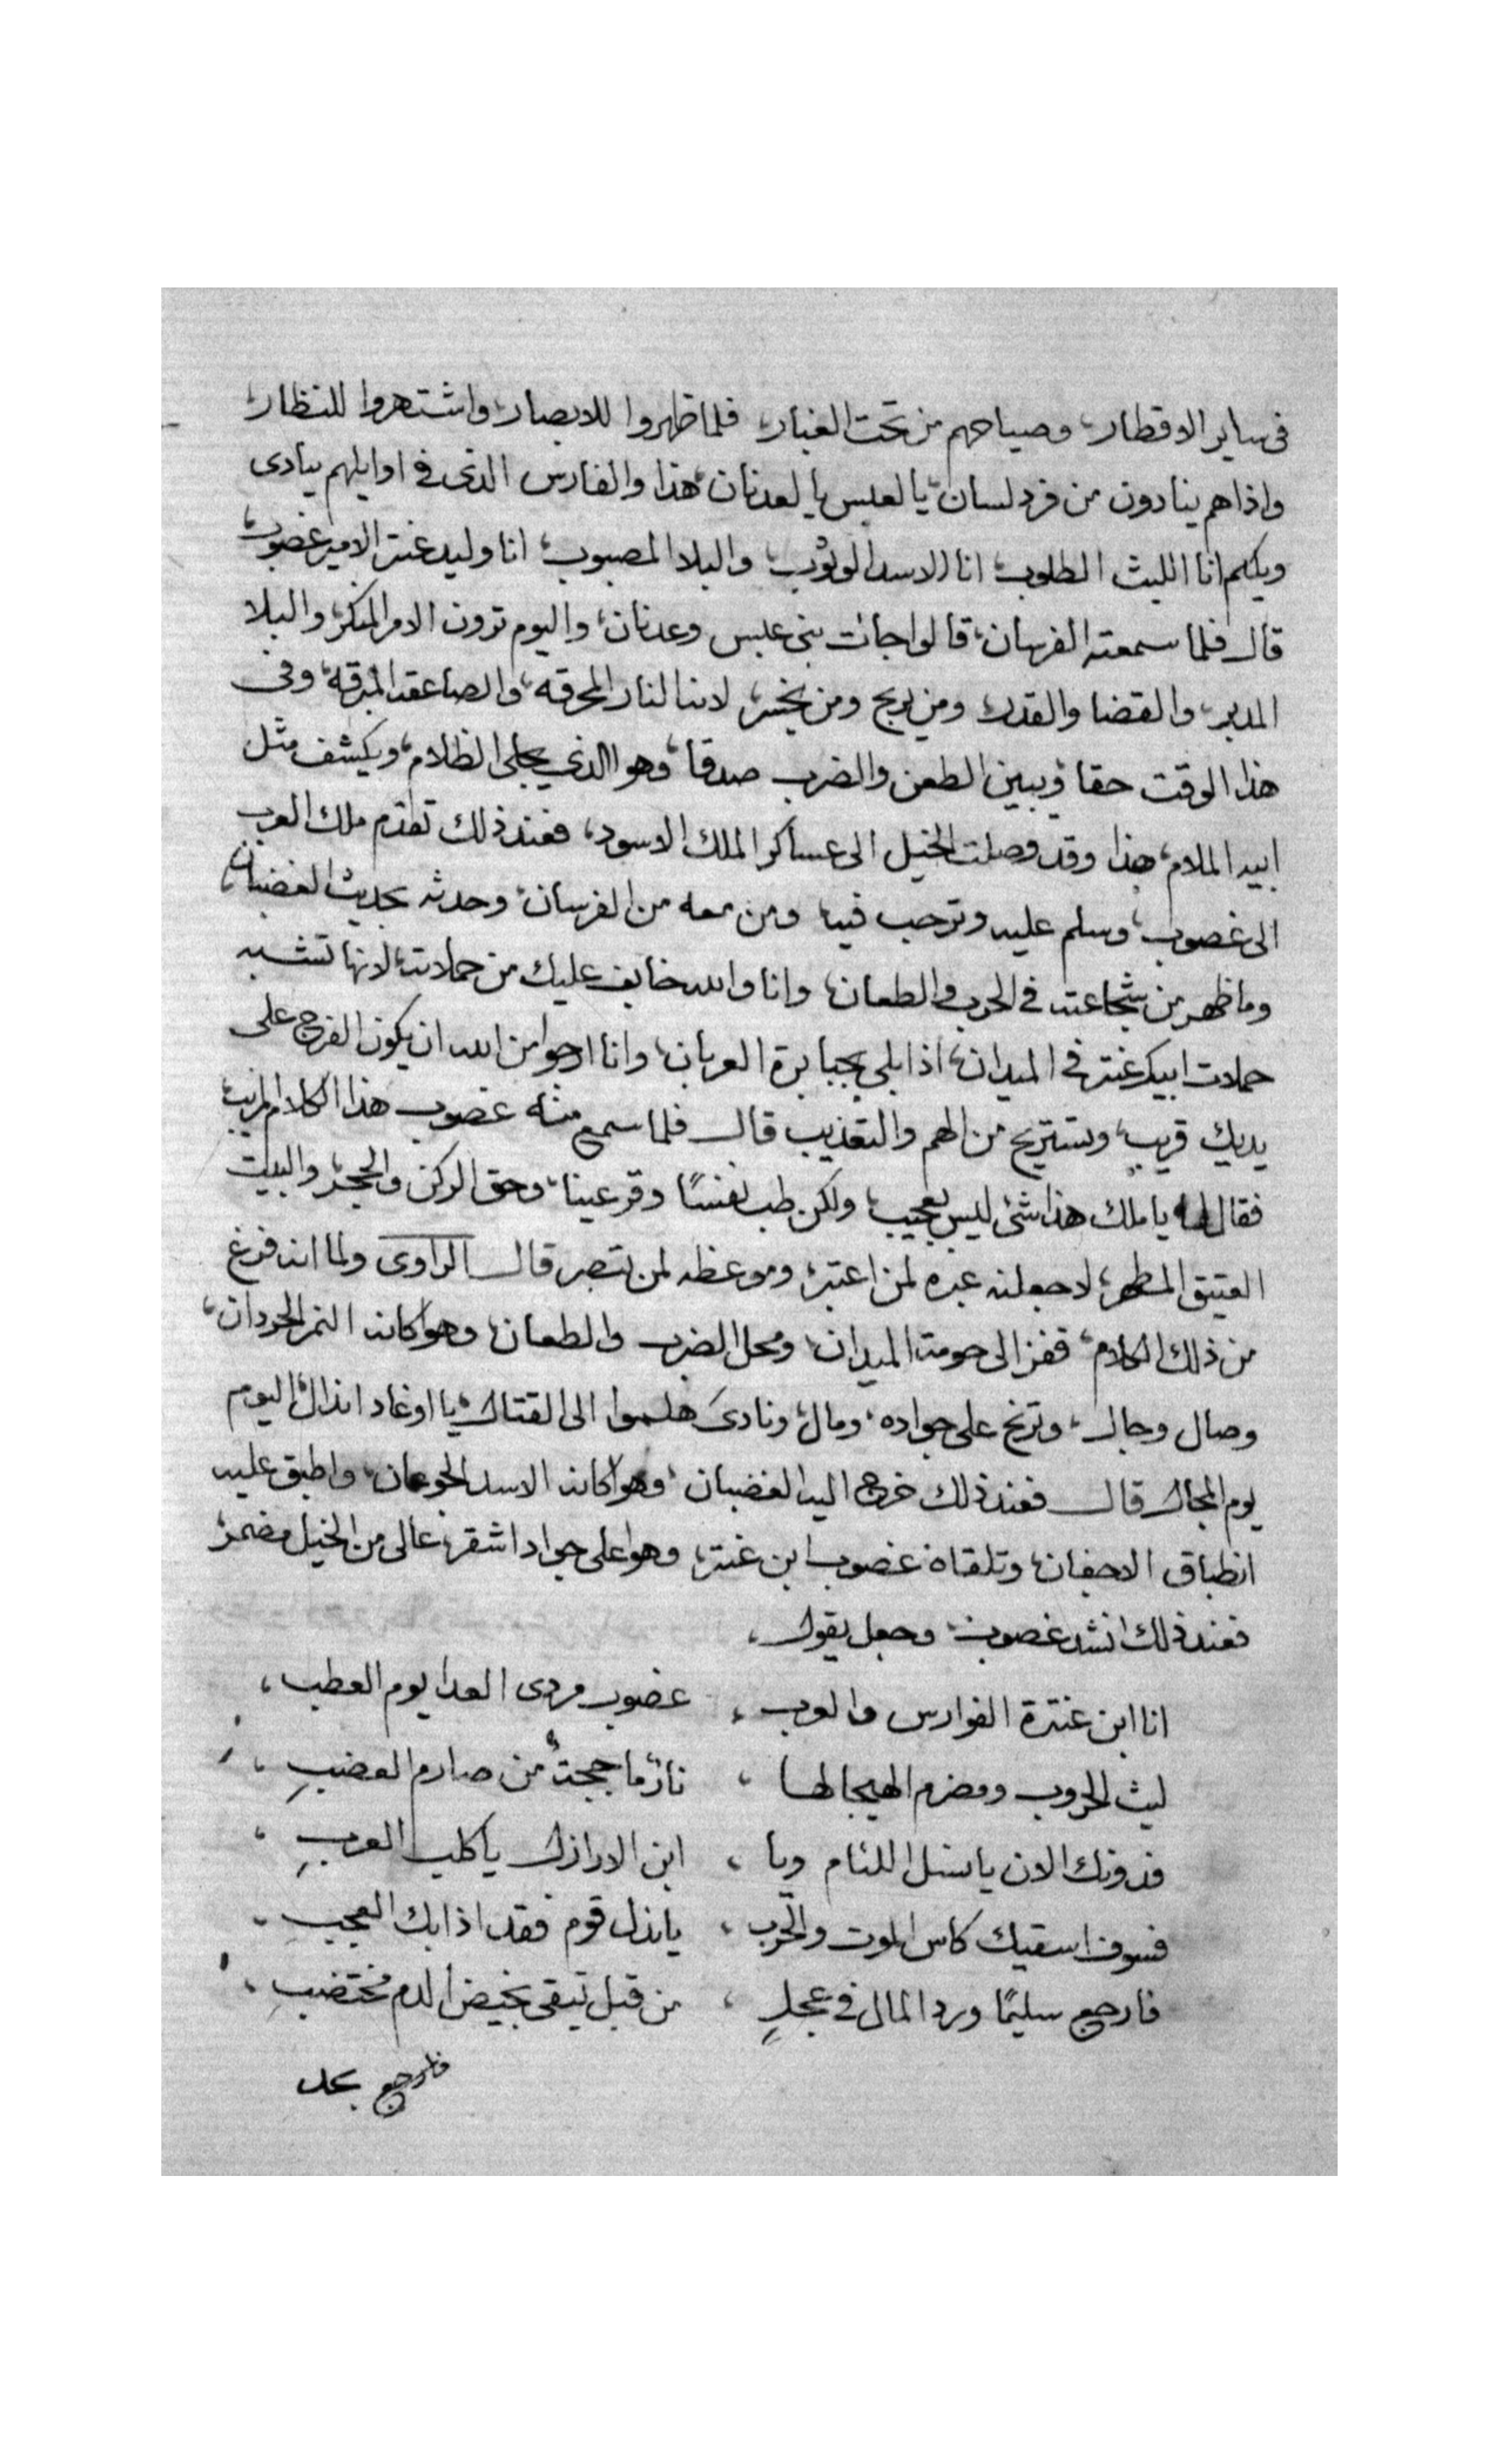 فى ساير الاقطار، وصياحهم من تحت الغبار، فلما ظهروا للابصار، واشتهروا للنظار،
واذا هم ينادون من فرد لسان، يا لعبس يا لعدنان، هذا والفارس الذى فى اوايلهم ينادى
ويلكم انا الليث الطلوب، انا الاسد الوثوب، والبلا المصبوب، انا وليد عنتر الامير غضوب،
قال فلما سمعته الفرسان، قالوا جات بنى عبس وعدنان، واليوم ترون الامر المنكر، والبلا
المدبر، والقضا والقدر، ومن يربح ومن يخسر، لاننا النار المحرقه، والصاعقه المبرقه، وفى
هذا الوقت حقا، ويبين الطعن والضرب صدقا، وهوا الذي يجلى الظلام، ويكشف مثل
ابيه الملام، هذا وقد وصلت الخيل الى عساكر الملك الاسود، فعند ذلك تقدم ملك العرب
الى غصوب، وسلم عليه وترحب فيه، ومن معه من الفرسان، وحدثه بحديث الغضبان،
وما ظهر من شجاعته فى الحرب والطعان، وانا والله خايف عليك من حملاته، لانها تشبه
حملات ابيك عنتر فى الميدان، اذا بلى بجبابرة العربان، وانا ارجوا من الله ان يكون الفرج على
يديك قريب، وتستريح من الهم والتعذيب قال فلما سمع منه غصوب هذا الكلام المريب
فقال له يا ملك هذا شئ ليس بعجيب، ولكن طب نفسًا وقر عينا، وحق الركن والحجر، والبيت
العتيق المطهر، لاجعلنه عبره لمن اعتبر، وموعظه لمن تبصر قال الراوى ولما انه فرغ
من ذلك الكلام، قفز الى حومة الميدان، ومحل الضرب والطعان، وهوا كانه النمر الحردان،
وصال وجال، وترنح على جواده، ومال، ونادى هلموا الى القتال، يا اوغاد انذال، اليوم
يوم المجال قال فعند ذلك خرج اليه الغضبان، وهوا كانه الاسد الجوعان، واطبق عليه
انطباق الاجفان، وتلقاه غصوب ابن عنتر، وهوا على جواد اشقر، عالى من الخيل مضمر،
فعند ذلك انشد غصوب، وجعل يقول،
انا ابن عنترة الفوارس والعرب، غضوب مردى العدا يوم العطب،
ليث الحروب ومضرم الهيجا لها، نارٌ ما ججتُ من صارم العضبِ،
فدونك الان يا نسل اللئام ويا، ابن الاراذل يا كلب العربِ،
فسوف اسقيك كاس الموت والحَرب، يا نذل قوم فقد اذا بك العجبِ،
فارجع سليمًا ورد المال فى عجلٍ، من قبل تبقى بخيض الدم مختضبِ،
فلا رجع بعد